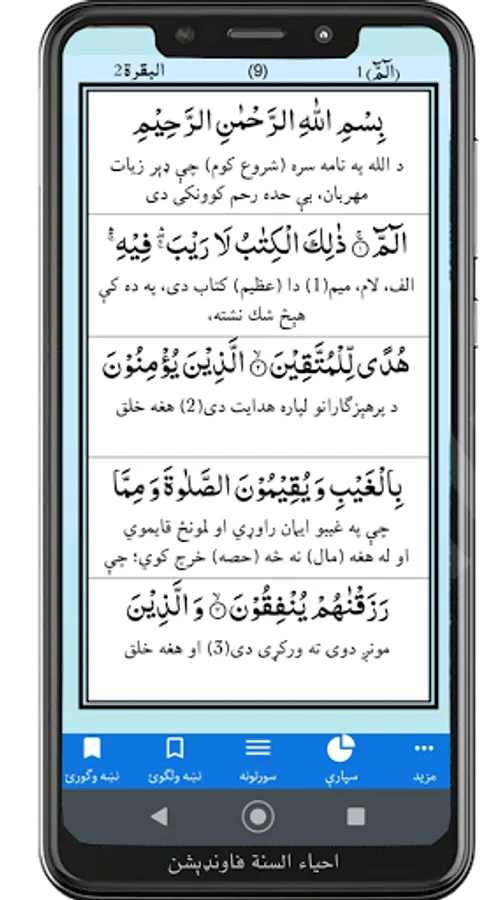 (الٓمّٓ) 1 (9) البقرة 2
بِسْمِ اللّٰهِ الرَّحْمٰنِ الرَّحِيْمِ
د الله په نامه سره (شروع کوم) چې ډېر زيات
مهربان، بې حده رحم کوونکی دی
الٓمّٓ ۝۱ ذٰلِكَ الْكِتٰبُ لَا رَيْبَ ۛۖ فِيْهِ ۛ
الف، لام، ميم(1) دا (عظيم) کتاب دی، په ده کې
هېڅ شك نشته،
هُدًى لِّلْمُتَّقِيْنَ ۝۲ الَّذِيْنَ يُؤْمِنُوْنَ
د پرهېزګارانو لپاره هدايت دی(2) هغه خلق
بِالْغَيْبِ وَيُقِيْمُوْنَ الصَّلٰوةَ وَمِمَّا
چې په غيبو ايمان راوړي او لمونځ قايموي
او له هغه (مال) نه څه (حصه) خرچ کوي؛ چې
رَزَقْنٰهُمْ يُنْفِقُوْنَ ۝۳ وَالَّذِيْنَ
مونږ دوی ته ورکړی دی(3) او هغه خلق
مزيد سپارې سورتونه نښه ولګوئ نښه وګورئ
احياء السنة فاونډېشن